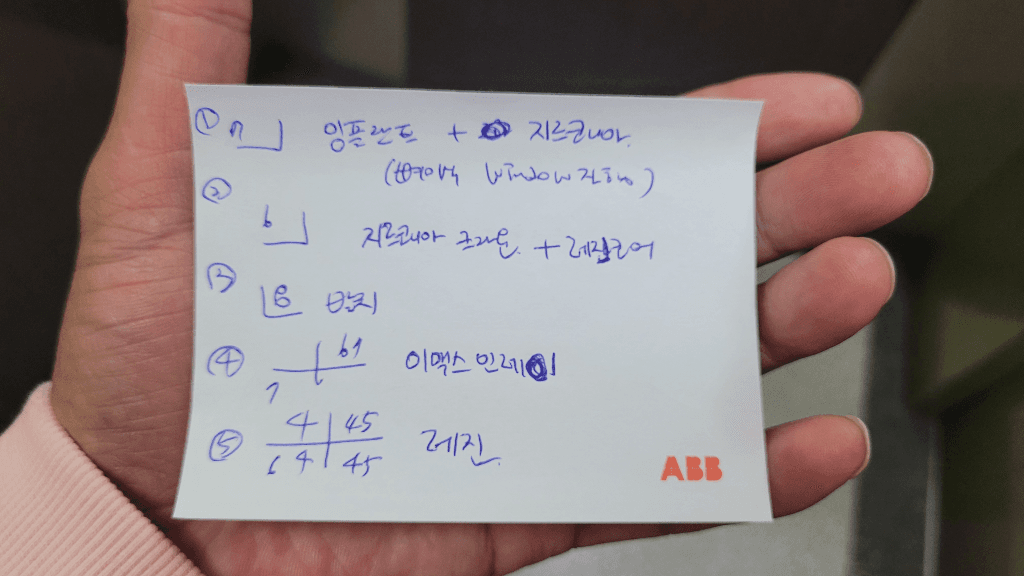 ① 7 임플란트 + 지르코니아.
(뼈이식 window 진행)
②
6 지르코니아 크라운 + 레진코어
③
8 발치
④ 67 이맥스 인레이
7
⑤ 4 45 레진
6 4 45
ABB